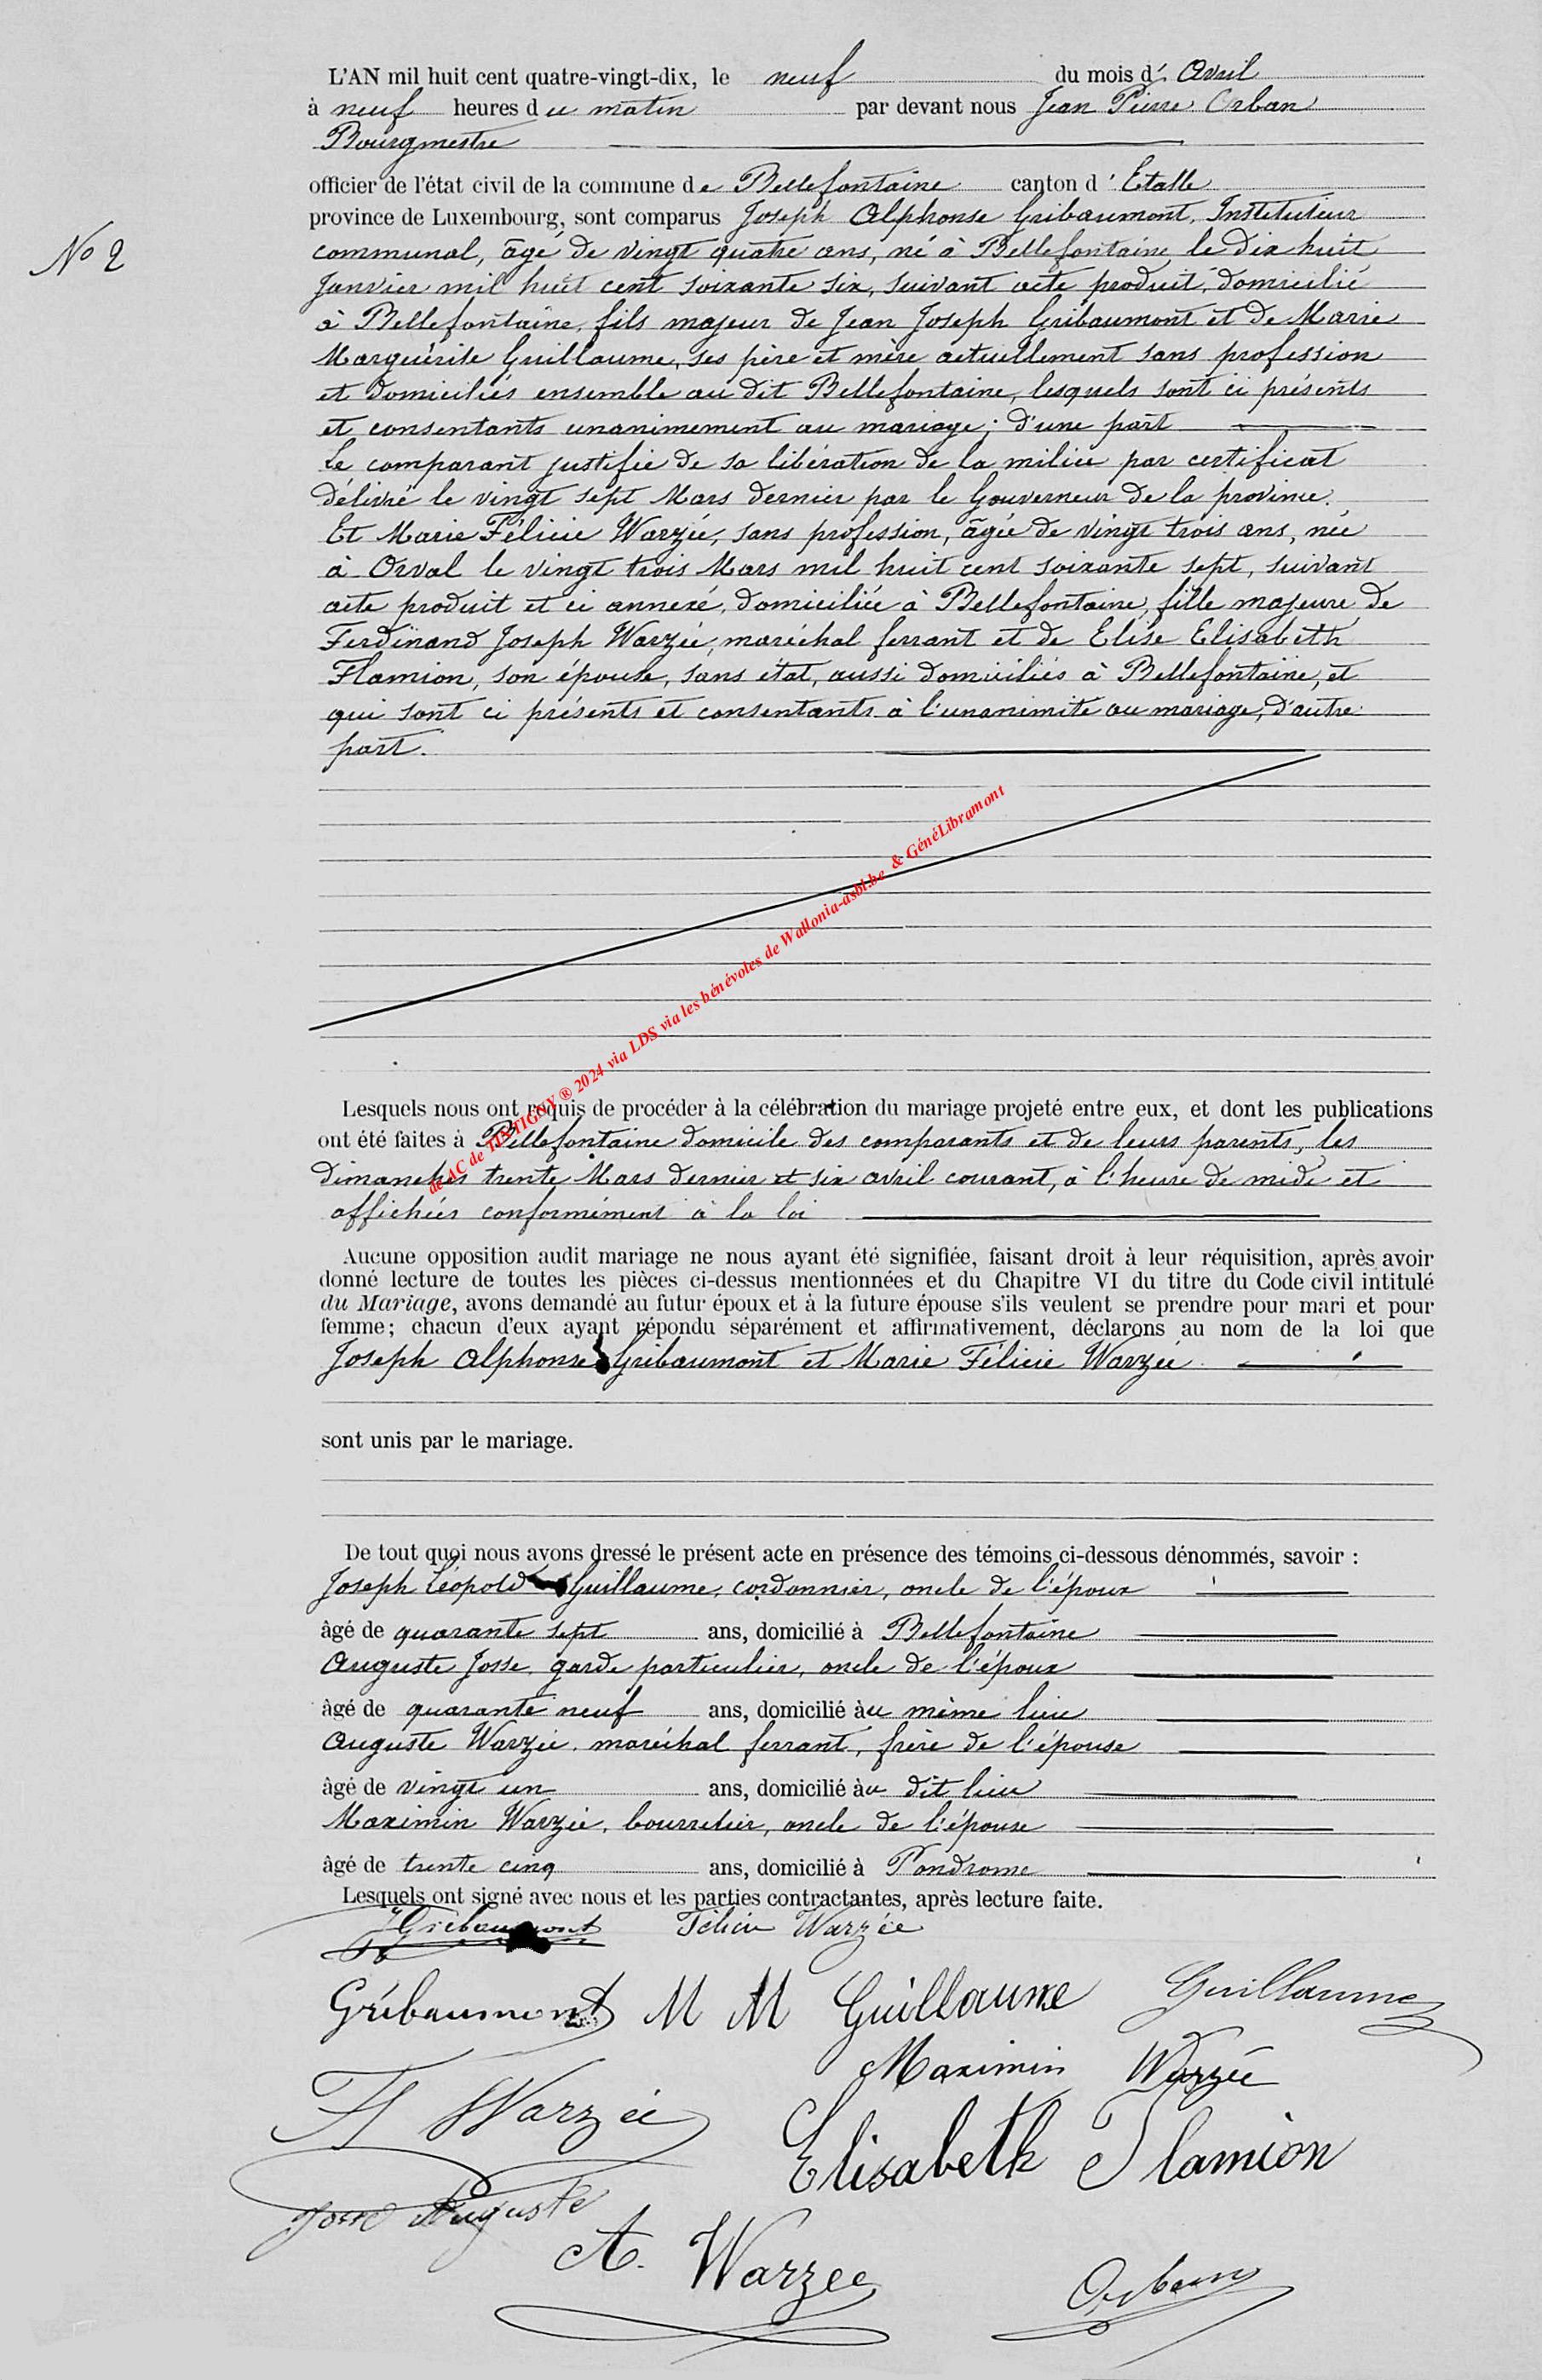 L'AN mil huit cent quatre-vingt-dix, le neuf du mois d'Avril
à neuf heures du matin par devant nous Jean Pierre Orban
Bourgmestre
officier de l'état civil de la commune de Bellefontaine canton d'Etalle
province de Luxembourg, sont comparus Joseph Alphonse Gribaumont, Instituteur
N° 2
communal, âgé de vingt quatre ans, né à Bellefontaine le dix huit
Janvier mil huit cent soixante six, suivant acte produit, domicilié
à Bellefontaine, fils majeur de Jean Joseph Gribaumont et de Marie
Marguérite Guillaume, ses père et mère actuellement sans profession
et domiciliés ensemble au dit Bellefontaine, lesquels sont ci présents
et consentants unanimement au mariage; d'une part
Le comparant justifie de sa libération de la milice par certificat
délivré le vingt sept Mars dernier par le Gouverneur de la province.
Et Marie Félicie Warzée, sans profession, âgée de vingt trois ans, née
à Orval le vingt trois Mars mil huit cent soixante sept, suivant
acte produit et ci annexé, domiciliée à Bellefontaine, fille majeure de
Ferdinand Joseph Warzée, maréchal ferrant et de Elise Elisabeth
Flamion, son épouse, sans état, aussi domiciliés à Bellefontaine, et
qui sont ci présents et consentants à l'unanimité au mariage, d'autre
part.
de AC de TINTIGNY ® 2024 via LDS via les bénévoles de Wallonia-asbl.be & GénéLibramont
Lesquels nous ont requis de procéder à la célébration du mariage projeté entre eux, et dont les publications
ont été faites à Bellefontaine domicile des comparants et de leurs parents, les
dimanches trente Mars dernier et six avril courant, à l'heure de midi et
affichées conformément à la loi
Aucune opposition audit mariage ne nous ayant été signifiée, faisant droit à leur réquisition, après avoir
donné lecture de toutes les pièces ci-dessus mentionnées et du Chapitre VI du titre du Code civil intitulé
du Mariage, avons demandé au futur époux et à la future épouse s'ils veulent se prendre pour mari et pour
femme; chacun d'eux ayant répondu séparément et affirmativement, déclarons au nom de la loi que
Joseph Alphonse Gribaumont et Marie Félicie Warzée
sont unis par le mariage.
De tout quoi nous avons dressé le présent acte en présence des témoins ci-dessous dénommés, savoir :
Joseph Léopold Guillaume, cordonnier, oncle de l'époux
âgé de quarante sept ans, domicilié à Bellefontaine
Auguste Josse, garde particulier, oncle de l'époux
âgé de quarante neuf ans, domicilié àu même lieu
Auguste Warzée, maréchal ferrant, frère de l'épouse
âgé de vingt un ans, domicilié àu dit lieu
Maximin Warzée, bourrelier, oncle de l'épouse
âgé de trente cinq ans, domicilié à Pondrome
Lesquels ont signé avec nous et les parties contractantes, après lecture faite.
Gribaumont Félicie Warzée
Gribaumont M M Guillaume Guillaume
Maximin Warzée
Warzée
Elisabeth Flamion
Josse Auguste
A. Warzee
Orban